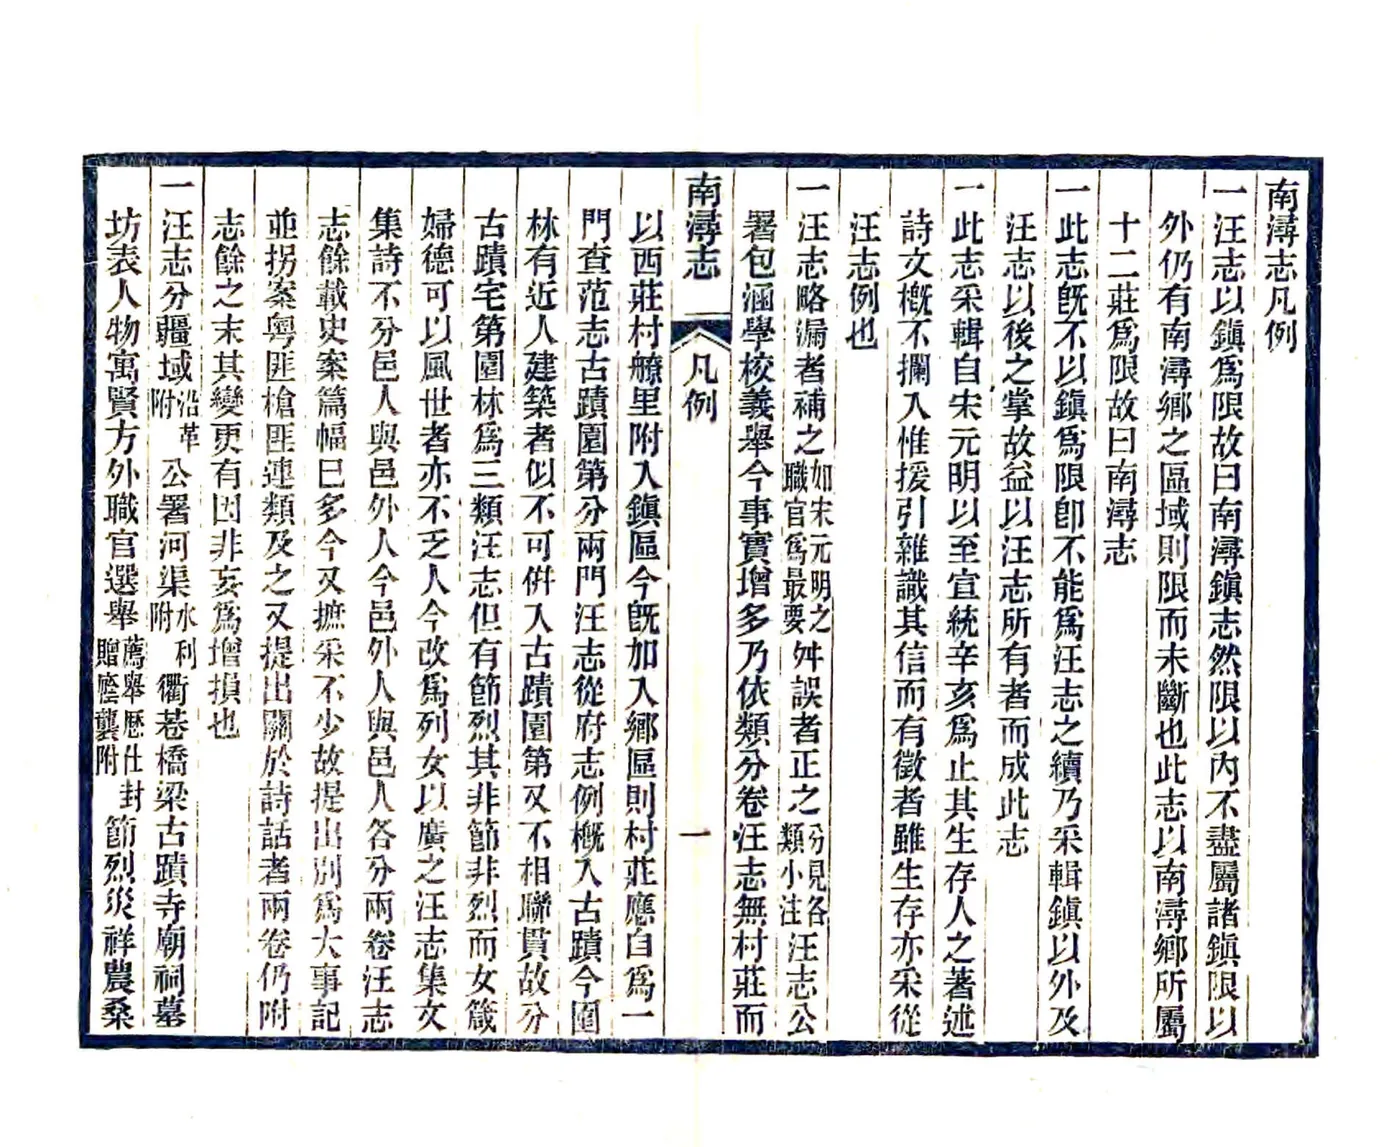 南潯志凡例
一汪志以鎭爲限故曰南潯鎭志然限以內不盡屬諸鎭限以
外仍有南潯鄉之區域則限而未斷也此志以南潯鄉所屬
十二莊爲限故曰南潯志
一此志旣不以鎭爲限卽不能爲汪志之續乃采輯鎭以外及
汪志以後之掌故益以汪志所有者而成此志
一此志采輯自宋元明以至宣統辛亥爲止其生存人之著述
詩文槪不攔入惟援引雜識其信而有徵者雖生存亦采從
汪志例也
一汪志略漏者補之如宋元明之職官爲最要舛誤者正之分見各類小注汪志公
署包涵學校義舉今事實增多乃依類分卷汪志無村莊而
南潯志 凡例 一
以西莊村𦪇里附入鎭區今旣加入鄉區則村莊應自爲一
門查范志古蹟園第分兩門汪志從府志例槪入古蹟今園
林有近人建築者似不可倂入古蹟園第又不相聯貫故分
古蹟宅第園林爲三類汪志但有節烈其非節非烈而女箴
婦德可以風世者亦不乏人今改爲列女以廣之汪志集文
集詩不分邑人與邑外人今邑外人與邑人各分兩卷汪志
志餘載史案篇幅已多今又摭采不少故提出別爲大事記
並拐案粵匪槍匪連類及之又提出關於詩話者兩卷仍附
志餘之末其變更有因非妄爲增損也
一汪志分疆域沿革附公署河渠水利附衢巷橋梁古蹟寺廟祠墓
坊表人物寓賢方外職官選舉薦舉歷仕封贈廕襲附節烈災祥農桑